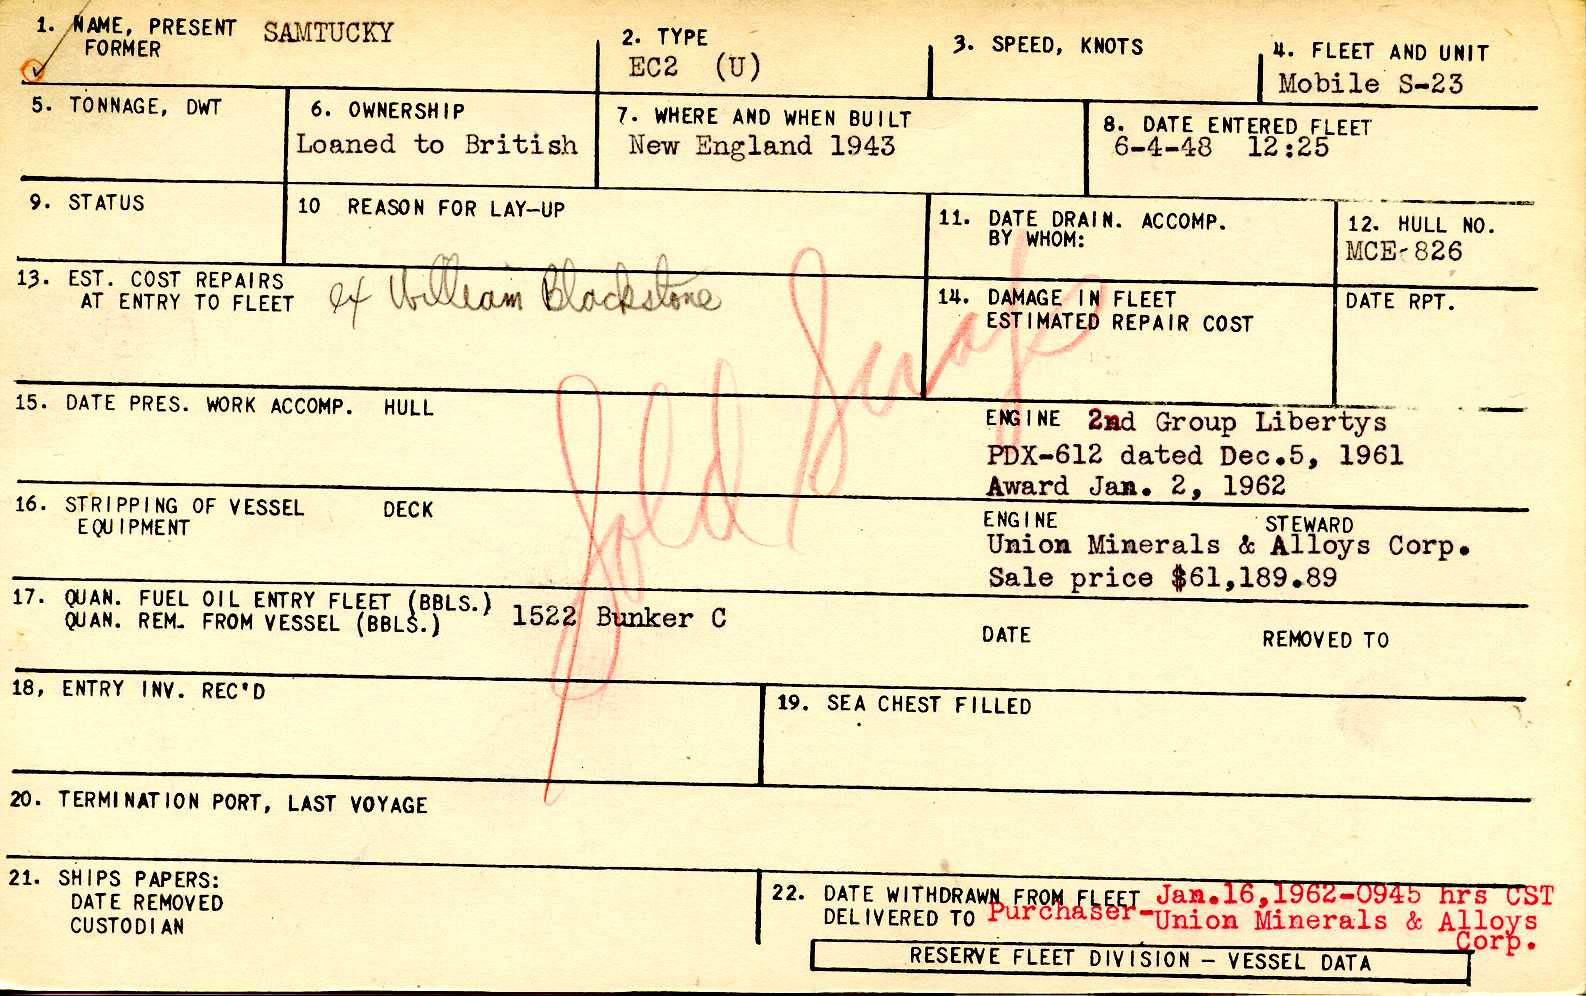 1. NAME, PRESENT SAMTUCKY
FORMER
2. TYPE
EC2 (U)
3. SPEED, KNOTS
4. FLEET AND UNIT
Mobile S-23
5. TONNAGE, DWT
6. OWNERSHIP
Loaned to British
7. WHERE AND WHEN BUILT
New England 1943
8. DATE ENTERED FLEET
6-4-48 12:25
9. STATUS
10 REASON FOR LAY-UP
11. DATE DRAIN. ACCOMP.
BY WHOM:
12. HULL NO.
MCE-826
13. EST. COST REPAIRS
AT ENTRY TO FLEET
ex William Blackstone
14. DAMAGE IN FLEET
ESTIMATED REPAIR COST
DATE RPT.
Sold Scrap
15. DATE PRES. WORK ACCOMP. HULL
ENGINE 2nd Group Libertys
PDX-612 dated Dec.5, 1961
Award Jan. 2, 1962
16. STRIPPING OF VESSEL DECK
EQUIPMENT
ENGINE STEWARD
Union Minerals & Alloys Corp.
Sale price $61,189.89
17. QUAN. FUEL OIL ENTRY FLEET (BBLS.)
QUAN. REM. FROM VESSEL (BBLS.)
1522 Bunker C
DATE REMOVED TO
18, ENTRY INV. REC'D
19. SEA CHEST FILLED
20. TERMINATION PORT, LAST VOYAGE
21. SHIPS PAPERS:
DATE REMOVED
CUSTODIAN
22. DATE WITHDRAWN FROM FLEET Jan.16,1962-0945 hrs CST
DELIVERED TO Purchaser-Union Minerals & Alloys
Corp.
RESERVE FLEET DIVISION - VESSEL DATA